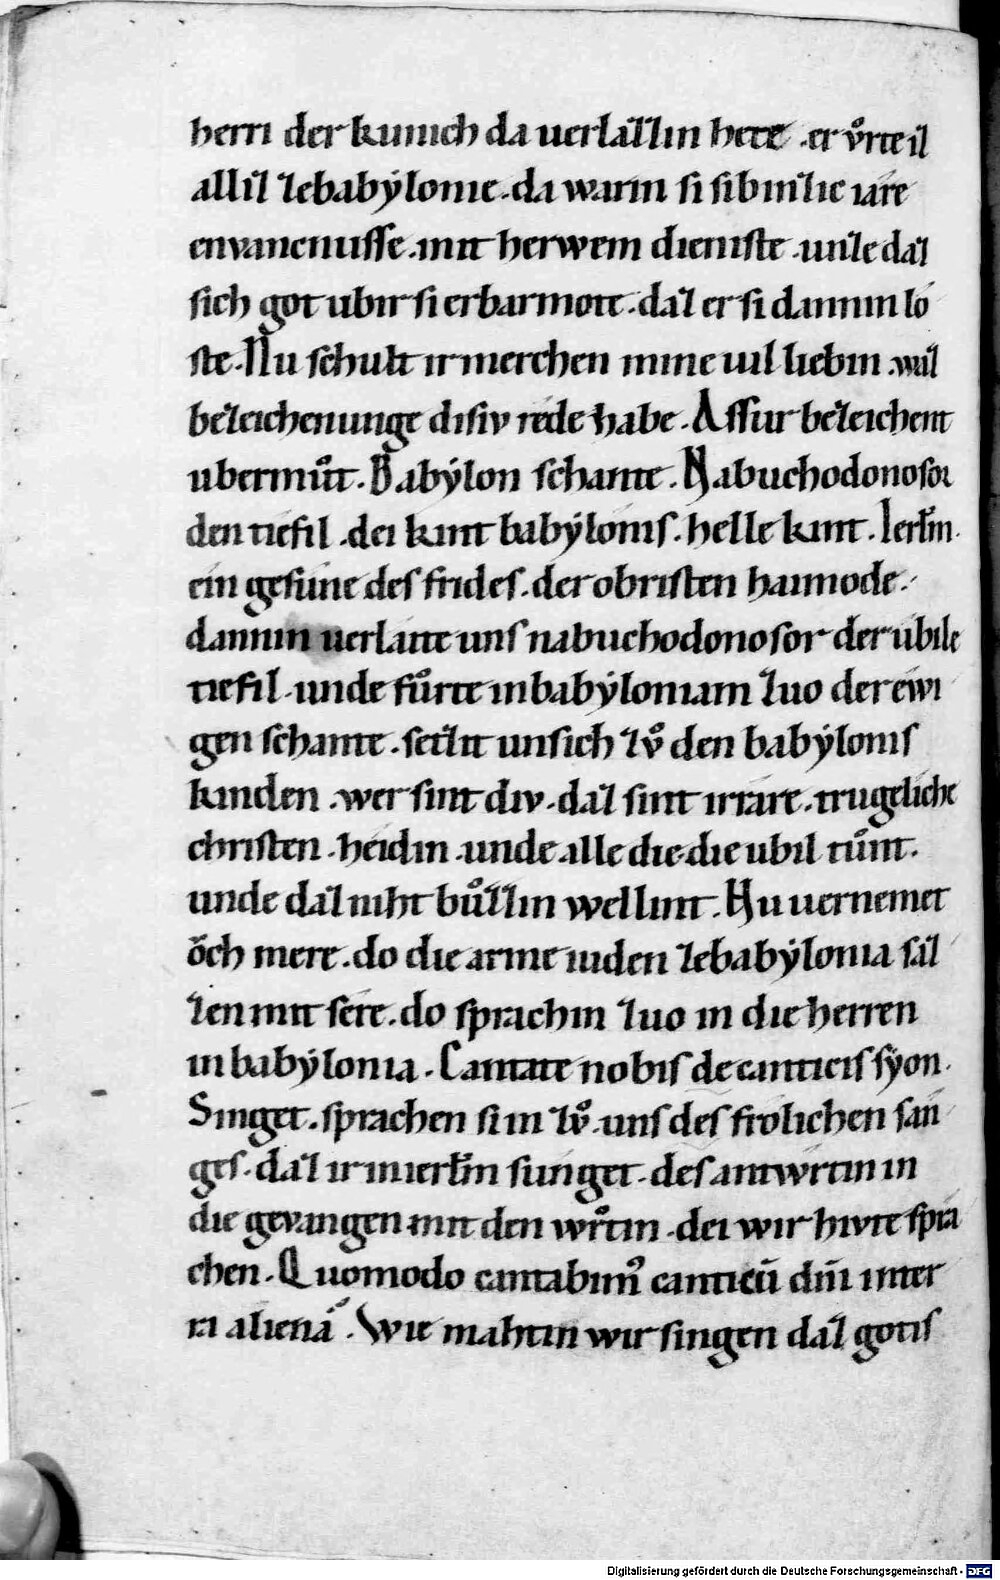 herri der kunich da uerlazzin hete ·er vͦrte iz
alliz zebabẏlonie·da warin si sibinzic iare
envancnusse·mit herwem dieniste·unze daz
sich got ubir si erbarmote·daz er si dannin lo
ste·Nu schult ir merchen mine uil liebin·waz
bezeichenunge disiv rede habe·Assur bezeichent
ubermuͦt·Babẏlon schante·Nabuchodonosor
den tiefil·dei kint babẏlonis·helle kint·Ierłm·
ein gesune des frides·der obristen haimode·
dannin uerlaitte uns nabuchodonosor der ubile
tiefil·unde fuͦrte inbabẏloniam zuo der ewi
gen schante·seizit unsich zvͦ den babẏlonis
kinden·wer sint div·daz sint irrare·trugeliche
christen·heidin·unde alle die·die ubil tuͦnt·
unde daz niht buͦzzin wellint·Nu uernemet
oͮch mere·do die arme iuden zebabẏlonia saz
zen mit sere·do sprachin zuo in die herren
in babẏlonia·Cantate nobis de canticis sẏon·
Singet·sprachen si in zvͦ·uns des frolichen san
ges·daz ir inierłm sunget·des antwrtin in
die gevangen mit den wͦrtin·dei wir hivte spra
chen·Quomodo cantabim᾽ canticū dn̄i inter
ra alienā·Wie mahtin wir singen daz gotis
Digitalisierung gefördert durch die Deutsche Forschungsgemeinschaft - DFG